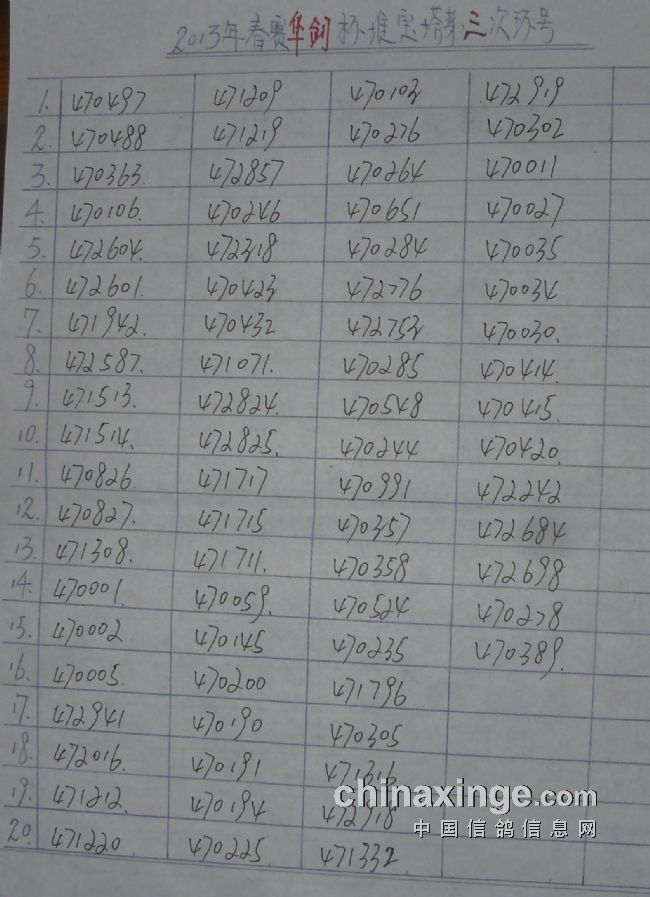 2013年春赛华剑杯堆宝塔第三次环号
1. 470497 471209 470103 472919
2. 470488 471219 470276 470302
3. 470363. 472857 470264 470011
4. 470106. 470246 470651 470027
5. 472604. 472318 470284 470035
6. 472601. 470423 472776 470034
7. 471942. 470432 472753 470030.
8. 472587. 471071. 470285 470414.
9. 471513. 472824. 470548 470415.
10. 471514. 472825. 470244 470420.
11. 470826. 471717 470991 472242
12. 470827. 471715 470357 472684
13. 471308. 471711. 470358 472698
14. 470001. 470059. 470524 470278
15. 470002 470145 470235 470389.
16. 470005. 470200 471796
17. 472941 470190 470305
18. 472016. 470191 471316
19. 471212. 470194 472918
20. 471220 470225. 471332
chinaxinge.com
中国信鸽信息网